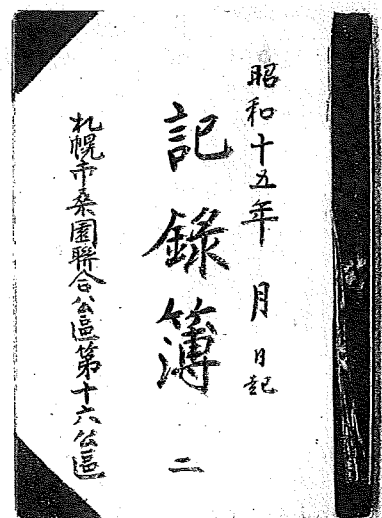 昭和十五年 月 日起
記錄簿 二
札幌市桑園聯合公區第十六公區